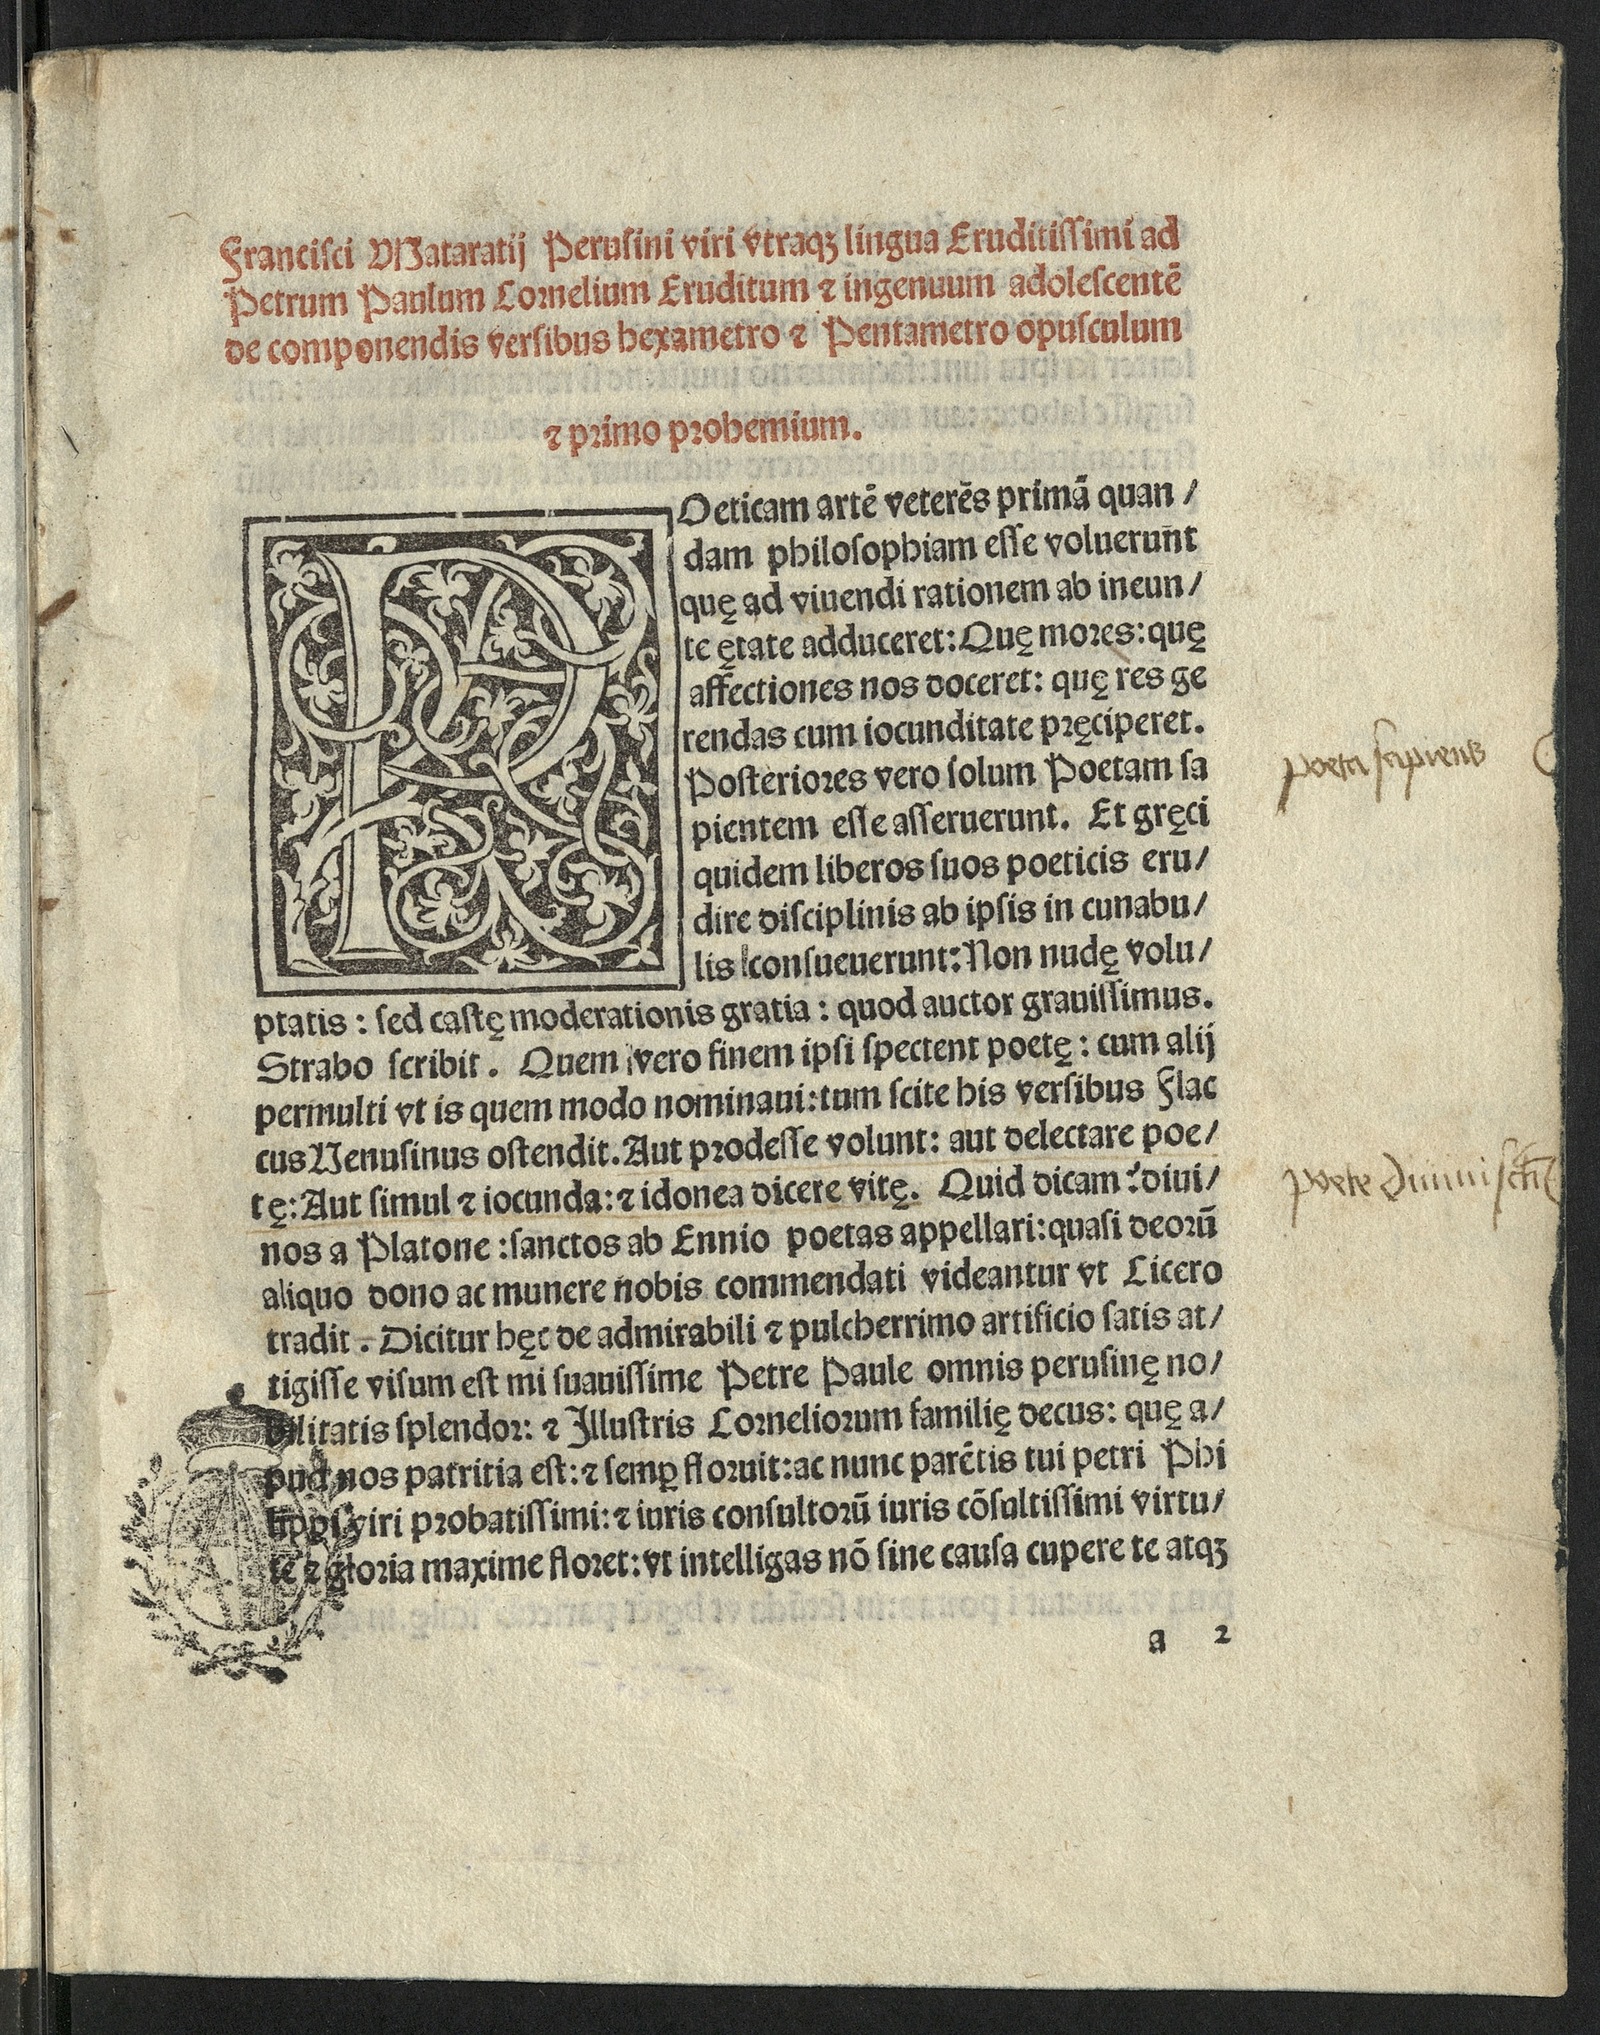 Franciſci Mataratij Peruſini viri vtraqꝫ lingua Eruditiſſimi ad
Petrum Paulum Cornelium Eruditum ⁊ ingenuum adoleſcentē
de componendis verſibus hexametro ⁊ Pentametro opuſculum
⁊ primo prohemium.
ROeticam artē veterēs primā quan/
dam philoſophiam eſſe voluerun̄t
quę ad viuendi rationem ab ineun/
te ętate adduceret: Quę mores: quę
affectiones nos doceret: quę res ge
rendas cum iocunditate pręciperet.
Poſteriores vero ſolum Poetam ſa
pientem eſſe aſſeruerunt. Et gręci
quidem liberos ſuos poeticis eru/
dire diſciplinis ab ipſis in cunabu/
lis conſueuerunt: Non nudę volu/
ptatis : ſed caſtę moderationis gratia : quod auctor grauiſſimus.
Strabo ſcribit. Quem vero finem ipſi ſpectent poetę : cum alij
permulti vt is quem modo nominaui: tum ſcite his verſibus Flac
cus Venuſinus oſtendit. Aut prodeſſe volunt: aut delectare poe/
tę: Aut ſimul ⁊ iocunda: ⁊ idonea dicere vitę. Quid dicam? diui/
nos a Platone : ſanctos ab Ennio poetas appellari: quaſi deorū
aliquo dono ac munere nobis commendati videantur vt Cicero
tradit. Dicitur hęc de admirabili ⁊ pulcherrimo artificio ſatis at/
tigiſſe viſum eſt mi ſuauiſſime Petre Paule omnis peruſinę no/
bilitatis ſplendor: ⁊ Illuſtris Corneliorum familię decus: quę a/
pud nos patritia eſt: ⁊ ſemꝑ floruit: ac nunc parētis tui petri Phi
lippi viri probatiſſimi: ⁊ iuris conſultorū iuris cōſultiſſimi virtu/
te ⁊ gloria maxime floret: vt intelligas nō ſine cauſa cupere te atqꝫ
a 2
poeta ſapiens
poete diuini